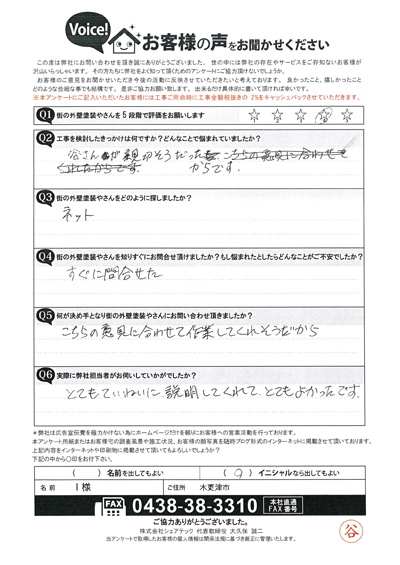 Voice!
お客様の声をお聞かせください
この度は弊社にお問い合わせを頂き誠にありがとうございました。世の中には弊社の存在やサービスをご存知ないお客様が
沢山いらっしゃいます。その方たちに弊社をよく知って頂くためのアンケートにご協力頂けないでしょうか。
お客様のご意見をお聞かせいただき今後の活動に反映させていただきたいと考えております。良かったこと、嬉しかったこと
どのような些細な事でも結構です。是非ご協力お願い致します。出来るだけ具体的に書いて頂ければ幸いです。
※本アンケートにご記入いただいたお客様には工事ご用命時に工事金額税抜きの2%をキャッシュバックさせていただきます。
Q1 街の外壁塗装やさんを5段階で評価をお願いします
☆ ☆ ☆ ☆ ☆
Q2 工事を検討したきっかけは何ですか?どんなことで悩まれていましたか?
谷さんが親切そうだった こちらの意見に合わせて
くれたからです。 からです。
Q3 街の外壁塗装やさんをどのように探しましたか?
ネット
Q4 街の外壁塗装やさんを知りすぐにお問合せ頂けましたか?もし悩まれたとしたらどんなことがご不安でしたか?
すぐに問合せた
Q5 何が決め手となり街の外壁塗装やさんにお問い合わせ頂きましたか?
こちらの意見に合わせて作業してくれそうだから
Q6 実際に弊社担当者がお伺いしていかがでしたか?
とてもていねいに、説明してくれて、とてもよかったです。
*弊社は広告宣伝費を極力かけない為にホームページだけを頼りにお客様への営業活動を行っております。
本アンケート用紙またはお客様宅の調査風景や施工状況、お客様の顔写真を随時ブログ形式のインターネットに掲載させて頂いております。
上記内容をインターネットや印刷物に掲載させて頂いてもよろしいでしょうか?
下記の中から〇印をお付下さい。
( )名前を出してもよい ( ○ )イニシャルなら出してもよい
名前 I様 ご住所 木更津市
FAX 0438-38-3310 本社直通 FAX番号
ご協力ありがとうございました。
株式会社シェアテック 代表取締役 大久保 誠二
当アンケートで取得したお客様の個人情報は関係法規に基づき厳正に管理いたします。
谷